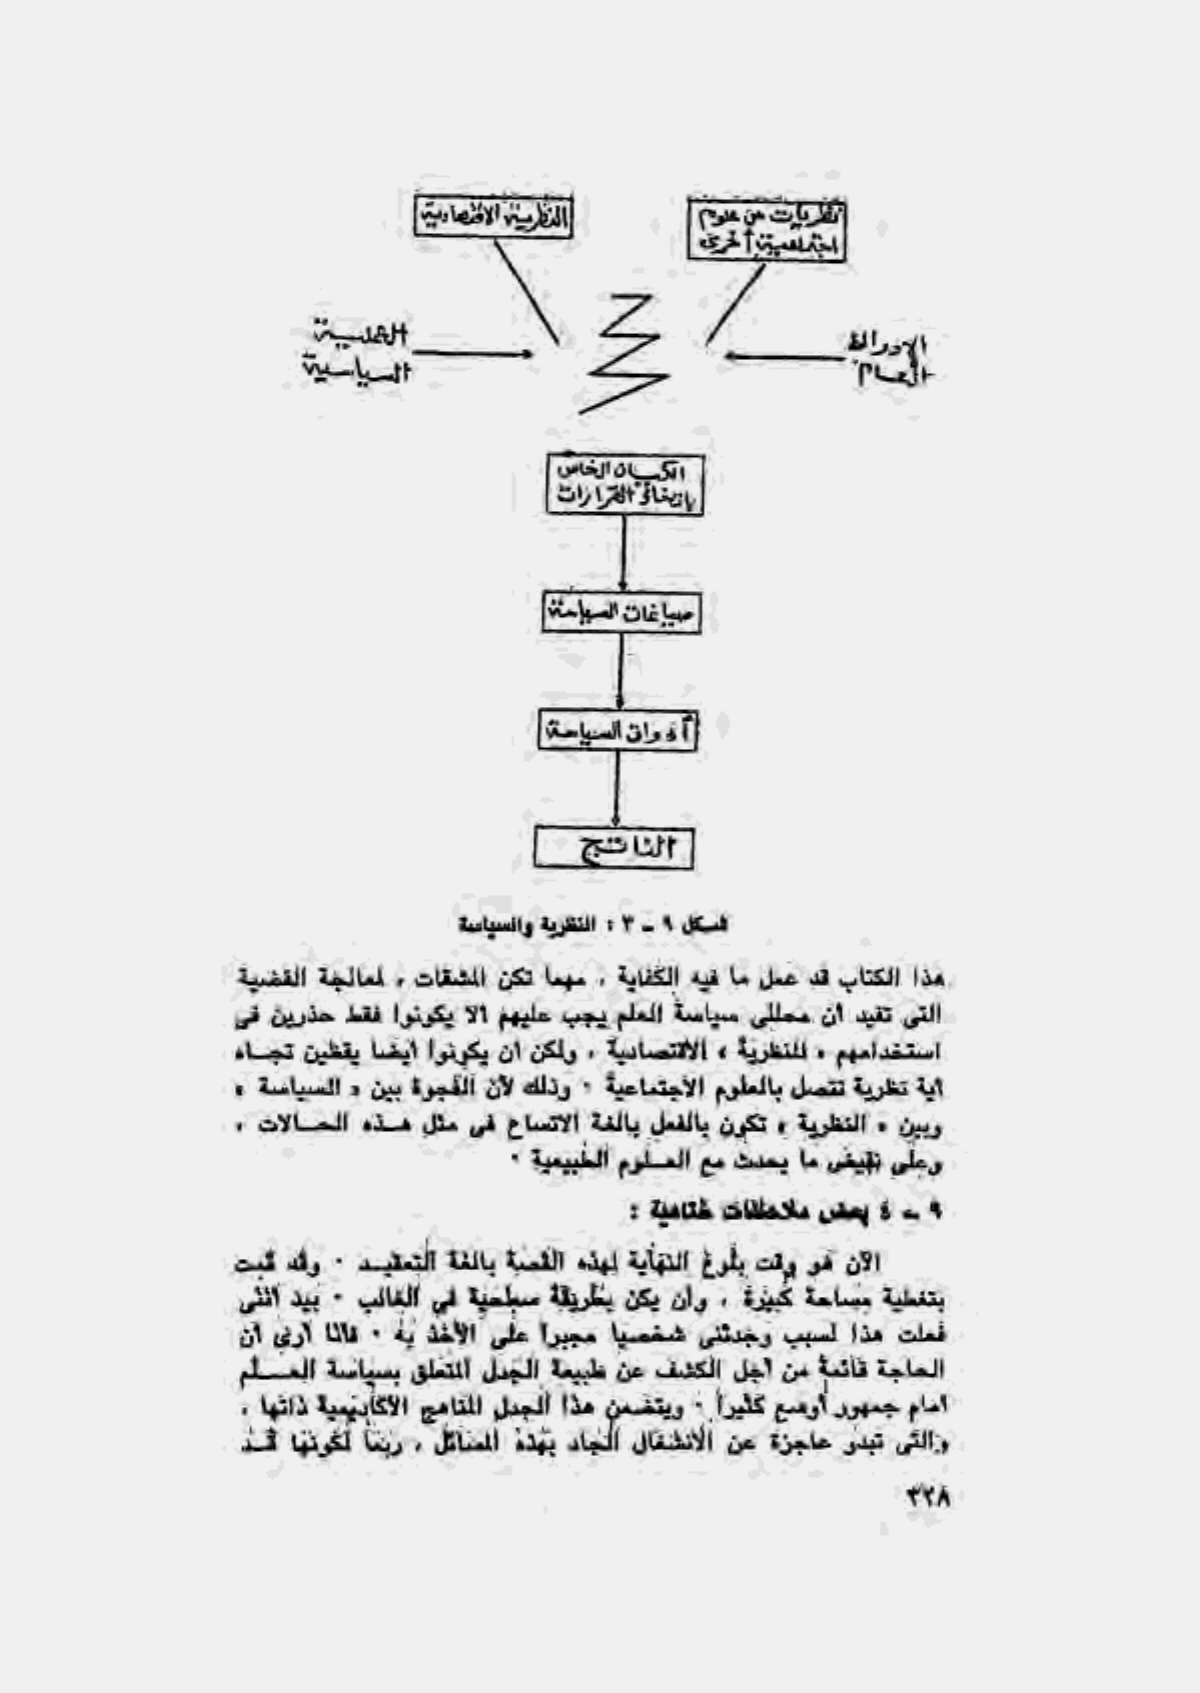 النظرية الاقتصادية
نظريات من علوم
اجتماعية أخرى
العملية
السياسية
الإدراك
العام
الكيان الخاص
باتخاذ القرارات
صياغات السياسة
أدوات السياسة
الناتج
شكل ٩ ــ ٣ : النظرية والسياسة
هذا الكتاب قد عمل ما فيه الكفاية ، مهما تكن المشقات ، لمعالجة القضية
التى تفيد أن محللى سياسة العلم يجب عليهم ألا يكونوا فقط حذرين فى
استخدامهم « للنظرية » الاقتصادية ، ولكن أن يكونوا أيضا يقظين تجـاه
أية نظرية تتصل بالعلوم الاجتماعية ٠ وذلك لأن الفجوة بين « السياسة »
وبين « النظرية » تكون بالفعل بالغة الاتساع فى مثل هـذه الحـالات ،
وعلى نقيض ما يحدث مع العـلوم الطبيعية ٠
٩ ــ ٤ بعض ملاحظات ختامية :
الآن هو وقت بلوغ النهاية لهذه القصة بالغة التعقيـد ٠ وقد قمت
بتغطية مساحة كبيرة ، وأن يكن بطريقة سطحية فى الغالب ٠ بيد أننى
فعلت هذا لسبب وجدتنى شخصيا مجبرا على الأخذ به ٠ فأنا أرى أن
الحاجة قائمة من أجل الكشف عن طبيعة الجدل المتعلق بسياسة العـــلم
أمام جمهور أوسع كثيرا ٠ ويتضمن هذا الجدل المناهج الأكاديمية ذاتها ،
والتى تبدو عاجزة عن الانشغال الجاد بهذه المسائل ، ربما لكونها قــد
٣٢٨